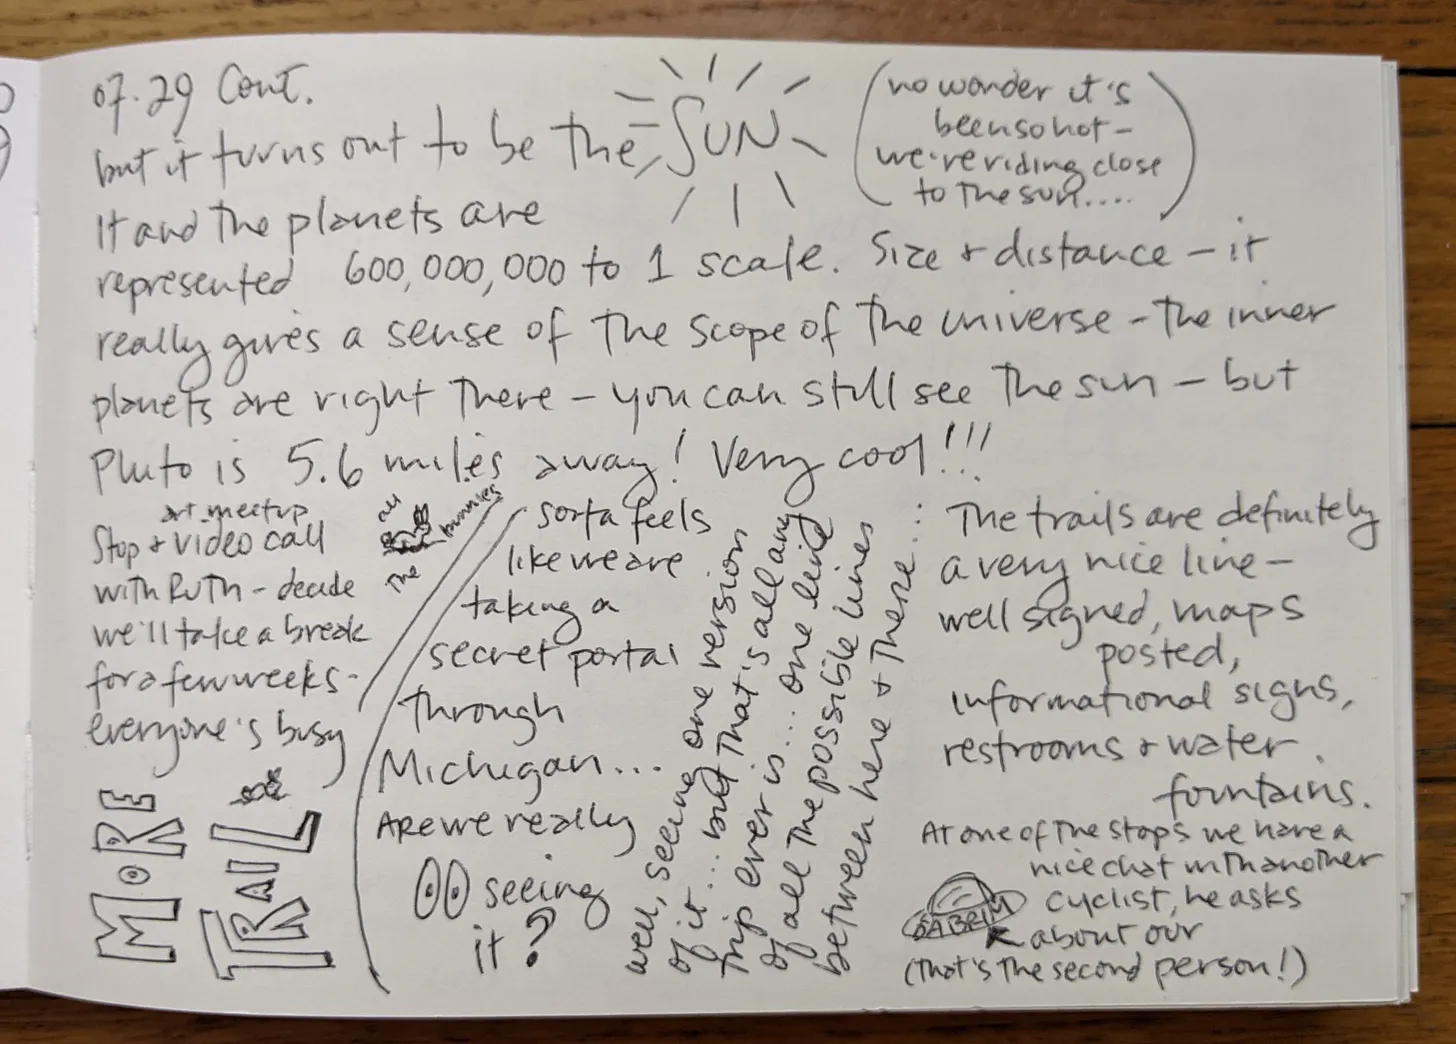 07.29 Cont.
but it turns out to be the SUN
(no wonder it's
been so hot -
we're riding close
to the sun....)
It and the planets are
represented 600,000,000 to 1 scale. Size + distance - it
really gives a sense of the scope of the universe - the inner
planets are right there - you can still see the sun - but
Pluto is 5.6 miles away! Very cool!!!
art meetup
Stop + video call
with Ruth - decide
we'll take a break
for a few weeks -
everyone's busy
The
bunnies
MORE
TRAIL
sorta feels
like we are
taking a
secret portal
through
Michigan...
Are we really
seeing
it?
well, seeing one version
of it... but that's all any
trip ever is... one line
of all the possible lines
between here + there...
The trails are definitely
a very nice line -
well signed, maps
posted,
informational signs,
restrooms + water
fountains.
At one of the stops we have a
nice chat with another
cyclist, he asks
about our
DABRIM
(that's the second person!)